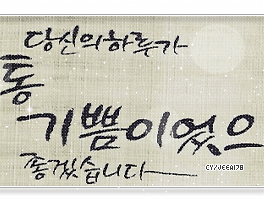 당신의하루가
통
기쁨이었으
좋겠습니다
CYVEGA178